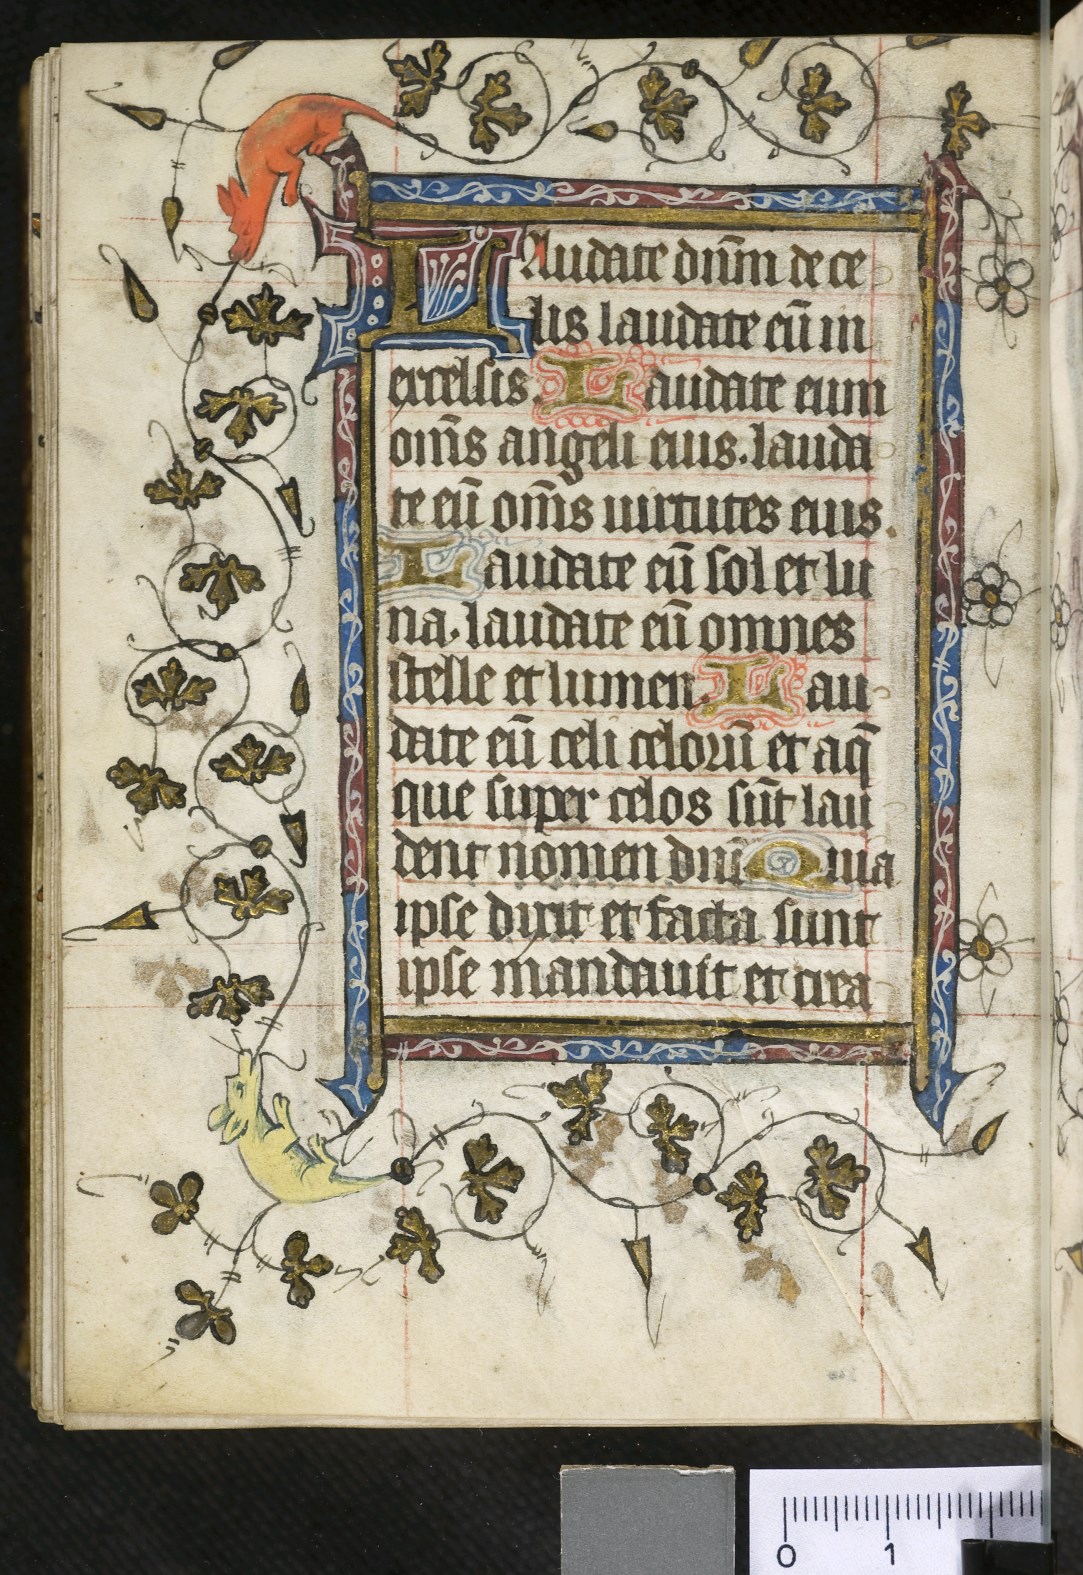 Laudate dn̄m de ce
lis laudate eū in
excelsis. Laudate eum
om̄s angeli eius. lauda
te eū om̄s uirtutes eius.
Laudate eū sol et lu
na. laudate eū omnes
stelle et lumen. Lau
date eū celi celorū et aq̄
que super celos sūt lau
dent nomen dnī Quia
ipse dixit et facta sunt
ipse mandauit et crea
0 1